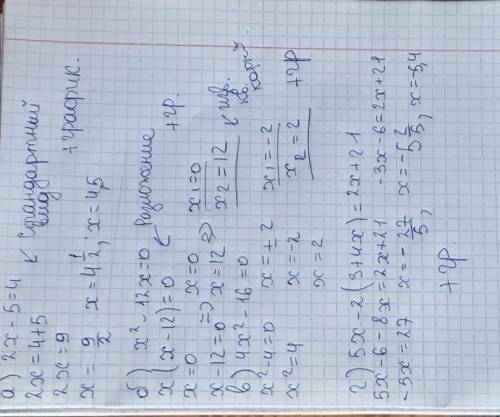 а) 2x - 5 = 4 ↙ Стандартный вид
2x = 4 + 5 + график.
2x = 9
x = 9/2, x = 4 1/2; x = 4,5
б) x² - 12x = 0
x(x - 12) = 0 ↙ Разложение
x = 0 x = 0 x₁ = 0 + гр.
x - 12 = 0 => x = 12 => x₂ = 12
в) 4x² - 16 = 0 ↙ изв. кв. корн.
x² - 4 = 0 x = ± 2 x₁ = -2
x² = 4 x = -2 x₂ = 2 + гр
x = 2
г) 5x - 2(3 + 4x) = 2x + 21
5x - 6 - 8x = 2x + 21 -3x - 6 = 2x + 21
-5x = 27 x = -27/5, x = -5 2/5, x = -5,4
+ гр.